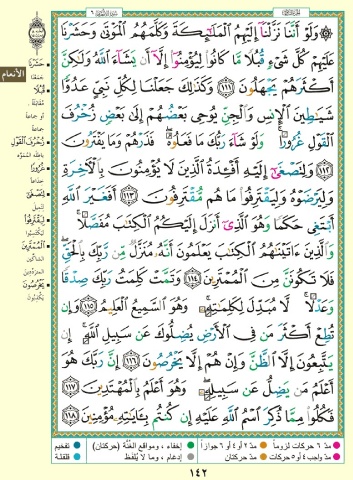 ۞ وَلَوْ أَنَّنَا نَزَّلْنَا إِلَيْهِمُ الْمَلَٰٓئِكَةَ وَكَلَّمَهُمُ الْمَوْتَىٰ وَحَشَرْنَا
عَلَيْهِمْ كُلَّ شَىْءٍ قُبُلًا مَّا كَانُوا۟ لِيُؤْمِنُوٓا۟ إِلَّآ أَن يَشَآءَ ٱللَّهُ وَلَٰكِنَّ
أَكْثَرَهُمْ يَجْهَلُونَ ١١١ وَكَذَٰلِكَ جَعَلْنَا لِكُلِّ نَبِىٍّ عَدُوًّا
شَيَٰطِينَ ٱلْإِنسِ وَٱلْجِنِّ يُوحِى بَعْضُهُمْ إِلَىٰ بَعْضٍ زُخْرُفَ
ٱلْقَوْلِ غُرُورًا ۚ وَلَوْ شَآءَ رَبُّكَ مَا فَعَلُوهُ ۖ فَذَرْهُمْ وَمَا يَفْتَرُونَ
١١٢ وَلِتَصْغَىٰٓ إِلَيْهِ أَفْـِٔدَةُ ٱلَّذِينَ لَا يُؤْمِنُونَ بِٱلْءَاخِرَةِ
وَلِيَرْضَوْهُ وَلِيَقْتَرِفُوا۟ مَا هُم مُّقْتَرِفُونَ ١١٣ أَفَغَيْرَ ٱللَّهِ
أَبْتَغِى حَكَمًا وَهُوَ ٱلَّذِىٓ أَنزَلَ إِلَيْكُمُ ٱلْكِتَٰبَ مُفَصَّلًا ۚ
وَٱلَّذِينَ ءَاتَيْنَٰهُمُ ٱلْكِتَٰبَ يَعْلَمُونَ أَنَّهُۥ مُنَزَّلٌ مِّن رَّبِّكَ بِٱلْحَقِّ ۖ
فَلَا تَكُونَنَّ مِنَ ٱلْمُمْتَرِينَ ١١٤ وَتَمَّتْ كَلِمَتُ رَبِّكَ صِدْقًا
وَعَدْلًا ۚ لَّا مُبَدِّلَ لِكَلِمَٰتِهِۦ ۚ وَهُوَ ٱلسَّمِيعُ ٱلْعَلِيمُ ١١٥ وَإِن
تُطِعْ أَكْثَرَ مَن فِى ٱلْأَرْضِ يُضِلُّوكَ عَن سَبِيلِ ٱللَّهِ ۚ إِن
يَتَّبِعُونَ إِلَّا ٱلظَّنَّ وَإِنْ هُمْ إِلَّا يَخْرُصُونَ ١١٦ إِنَّ رَبَّكَ هُوَ
أَعْلَمُ مَن يَضِلُّ عَن سَبِيلِهِۦ ۖ وَهُوَ أَعْلَمُ بِٱلْمُهْتَدِينَ ١١٧
فَكُلُوا۟ مِمَّا ذُكِرَ ٱسْمُ ٱللَّهِ عَلَيْهِ إِن كُنتُم بِـَٔايَٰتِهِۦ مُؤْمِنِينَ ١١٨
الأنعام
حَشَرْنَا
جمعنا
قُبُلًا
مقابلة
أو جماعة
جماعة
زُخْرُفَ ٱلْقَوْلِ
باطله المُمَوَّه
غُرُورًا
خداعًا
لِتَصْغَىٰ
لتميل
لِيَقْتَرِفُوا۟
ليكتسبوا
ٱلْمُمْتَرِينَ
الشاكّين
المتردّدين
يَخْرُصُونَ
يكذبون
مدّ ٦ حركات لزوماً مدّ ٢ أو ٤ أو ٦ جوازاً إخفاء ، ومواقع الغُنَّة (حركتان) تفخيم
مدّ واجب ٤ أو ٥ حركات مدّ حركتان إدغام ، وما لا يُلفَظ قلقلة
١٤٢